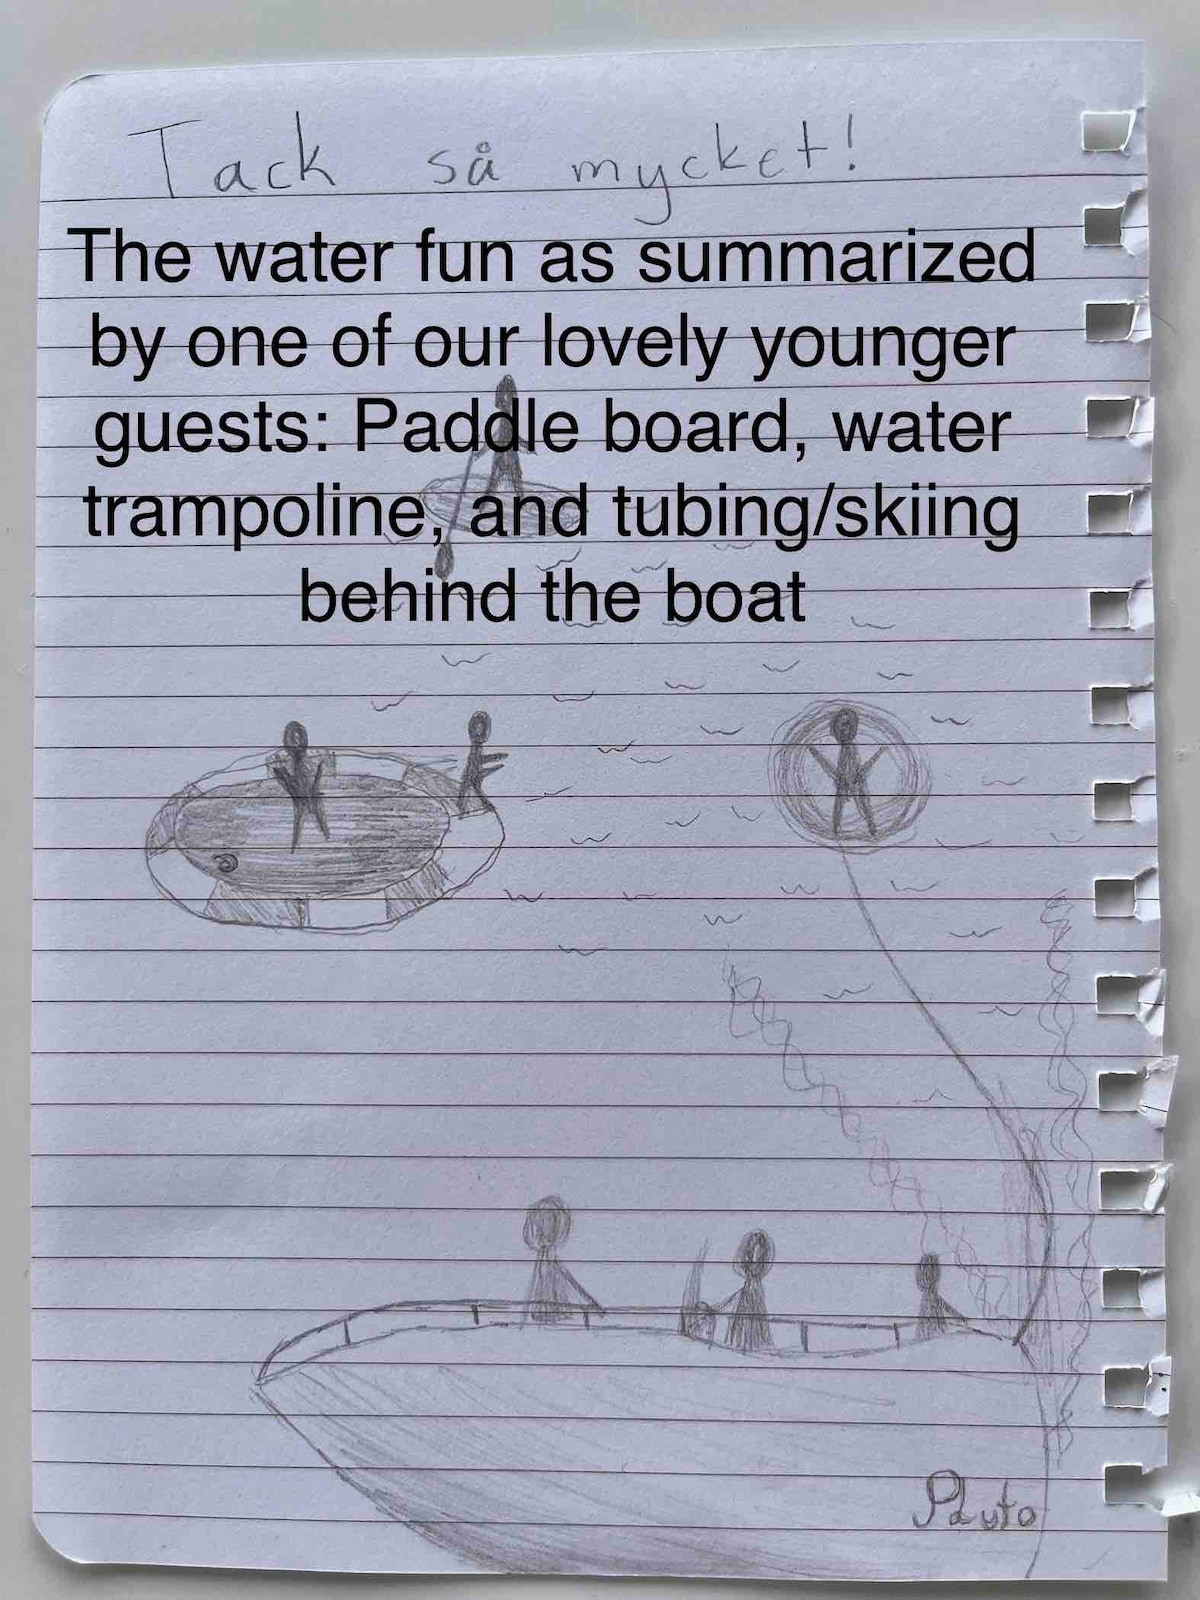 Tack så mycket!
The water fun as summarized
by one of our lovely younger
guests: Paddle board, water
trampoline, and tubing/skiing
behind the boat
Pluto